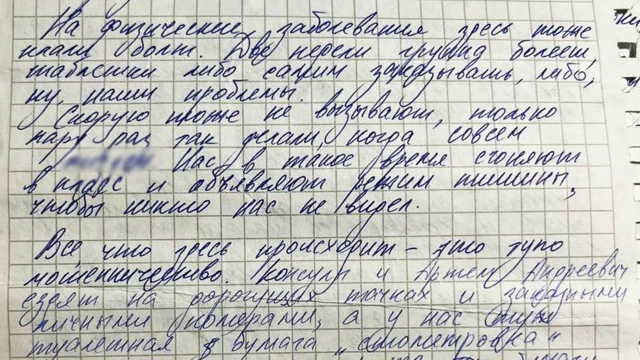 На физические заболевания здесь тоже
клали болт. Две недели группа болеет,
таблетки либо самим заказывать, либо,
ну, наши проблемы.
Скорую тоже не вызывают, только
пару раз так делали, когда совсем
Нас в такое время сгоняют
в класс и объявляют режим тишины,
чтобы никто нас не видел.
Всё что здесь происходит – это тупо
мошенничество. Консулы и Артём Андреевич
ездят на дорогущих тачках и заказными
личными поварами, а у нас
туалетная бумага "стометровка"